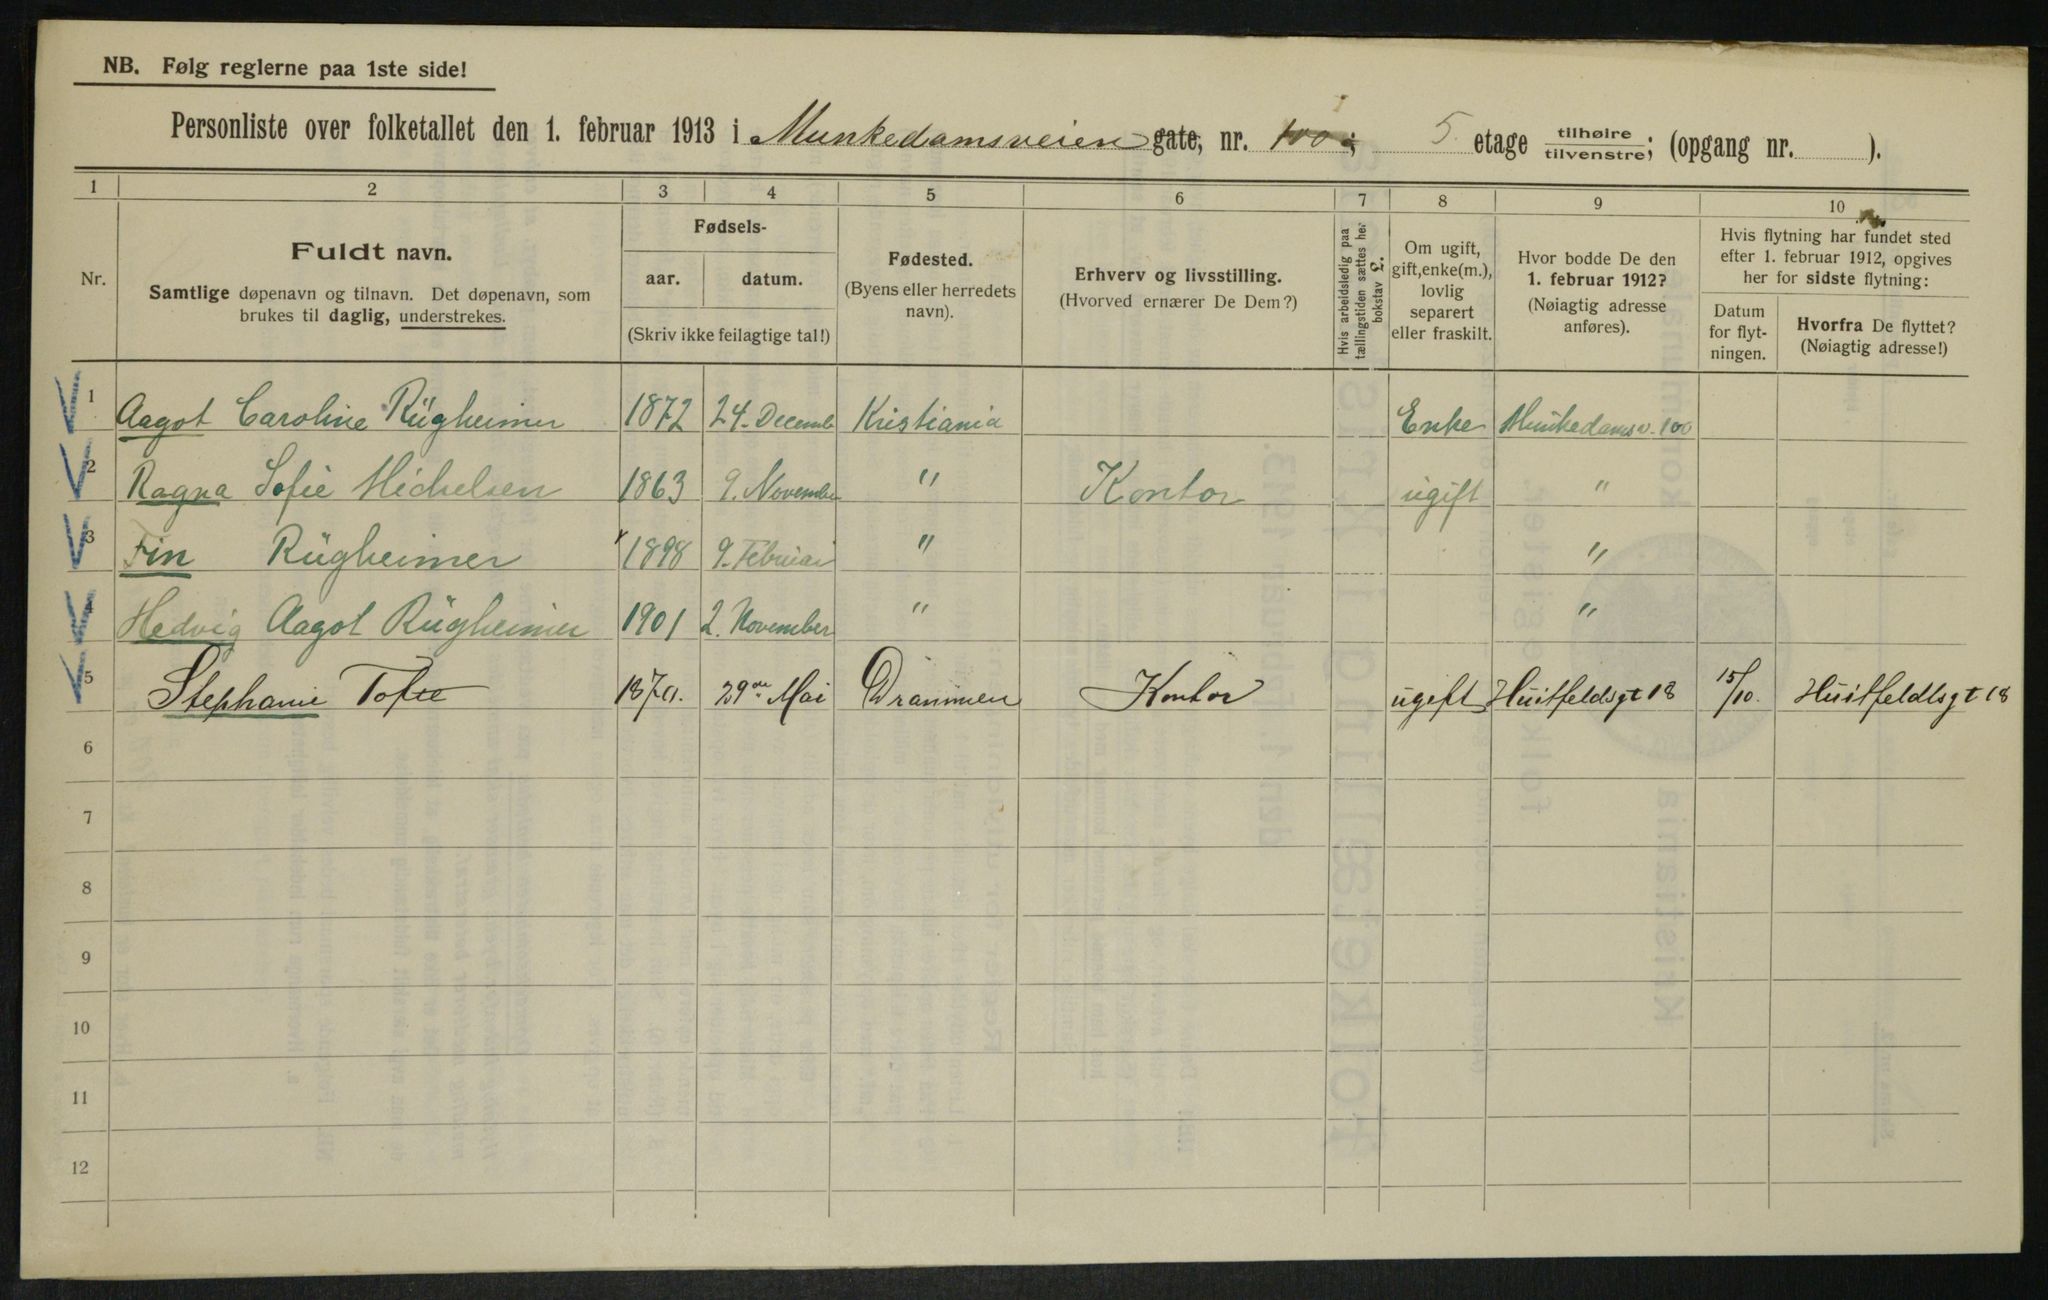 NB. Følg reglerne paa 1ste side!
Personliste over folketallet den 1. februar 1913 i Munkedamsveien gate, nr. 100; 5 etage tilhøire/tilvenstre; (opgang nr. ).
1 2 3 4 5 6 7 8 9 10
Nr.
Fuldt navn.
Samtlige døpenavn og tilnavn. Det døpenavn, som
brukes til daglig, understrekes.
Fødsels-
aar. datum.
(Skriv ikke feilagtige tal!)
Fødested.
(Byens eller herredets
navn).
Erhverv og livsstilling.
(Hvorved ernærer De Dem?)
Hvis arbeidsledig paa
tællingstiden sættes her
bokstav L.
Om ugift,
gift, enke(m.),
lovlig
separert
eller fraskilt.
Hvor bodde De den
1. februar 1912?
(Nøiagtig adresse
anføres).
Hvis flytning har fundet sted
efter 1. februar 1912, opgives
her for sidste flytning:
Datum
for flyt-
ningen.
Hvorfra De flyttet?
(Nøiagtig adresse!)
1 Aagot Caroline Rügheimer 1872 24. Decemb Kristiania Enke Munkedamsv. 100
2 Ragna Sofie Michelsen 1863 9. November " Kontor ugift "
3 Fin Rügheimer 1898 9. Februar " "
4 Hedvig Aagot Rügheimer 1901 2. November " "
5 Stephanie Tofte 1870. 29de Mai Drammen Kontor ugift Huitfeldsgt 18 15/10. Huitfeldtsgt 18
6
7
8
9
10
11
12